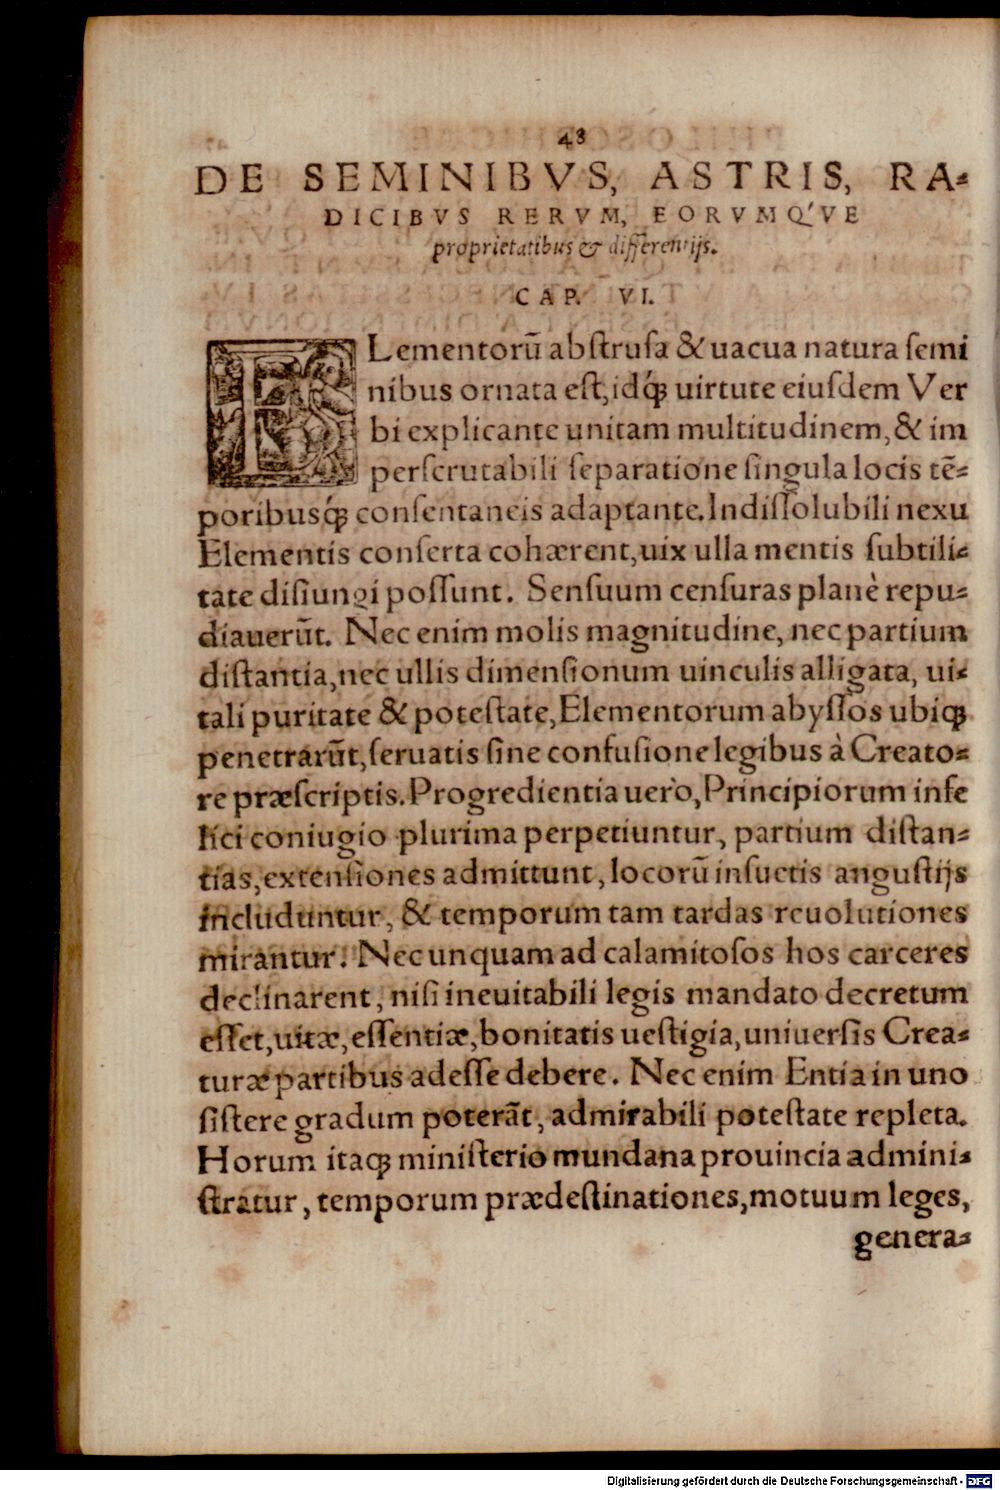 48
DE SEMINIBVS, ASTRIS, RA-
DICIBVS RERVM, EORVMQ'VE
proprietatibus & differentijs.
CAP. VI.
ELementorũ abstrusa & uacua natura semi
nibus ornata est, idq́; uirtute eiusdem Ver
bi explicante unitam multitudinem, & im
perscrutabili separatione singula locis tẽ-
poribusq́; consentaneis adaptante. Indissolubili nexu
Elementis conserta cohærent, uix ulla mentis subtili-
tate disiungi possunt. Sensuum censuras planè repu-
diauerũt. Nec enim molis magnitudine, nec partium
distantia, nec ullis dimensionum uinculis alligata, ui-
tali puritate & potestate, Elementorum abyssos ubiq;
penetrarũt, seruatis sine confusione legibus à Creato-
re præscriptis. Progredientia uerò, Principiorum infe
lici coniugio plurima perpetiuntur, partium distan-
tias, extensiones admittunt, locorũ insuetis angustijs
includuntur, & temporum tam tardas reuolutiones
mirantur. Nec unquam ad calamitosos hos carceres
declinarent, nisi ineuitabili legis mandato decretum
esset, uitæ, essentiæ, bonitatis uestigia, uniuersis Crea-
turæ partibus adesse debere. Nec enim Entia in uno
sistere gradum poterãt, admirabili potestate repleta.
Horum itaq; ministerio mundana prouincia admini-
stratur, temporum prædestinationes, motuum leges,
genera-
Digitalisierung gefördert durch die Deutsche Forschungsgemeinschaft - DFG